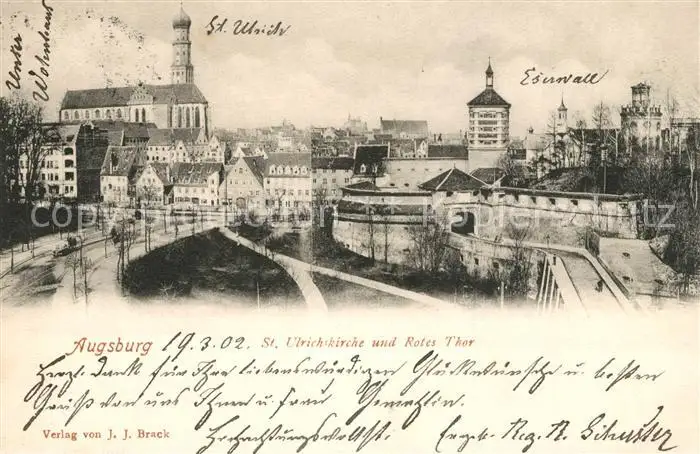 St. Ulrich
Unser
Wohnhaus
Eserwall
Augsburg 19.3.02. St. Ulrichskirche und Rotes Thor
Herzl. Dank für Ihre liebenswürdigen Glückwünsche u. besten
Gruß von uns Ihnen u. Frau Gemahlin.
Hochachtungsvollst. Ergeb. Reg. R. Schuster
Verlag von J. J. Brack